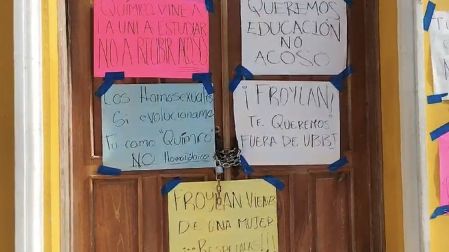 QUÍMICO, VINE A
LA UNI A ESTUDIAR
NO A RECIBIR
QUEREMOS
EDUCACIÓN
NO
ACOSO
Los Homosexuales
Si evolucionamos
Tu como "Químico"
NO Homofóbico
¡FROYLAN!
TE QUEREMOS
FUERA DE
FROYLAN VIENE
DE UNA MUJER
...RESPETALAS!!!